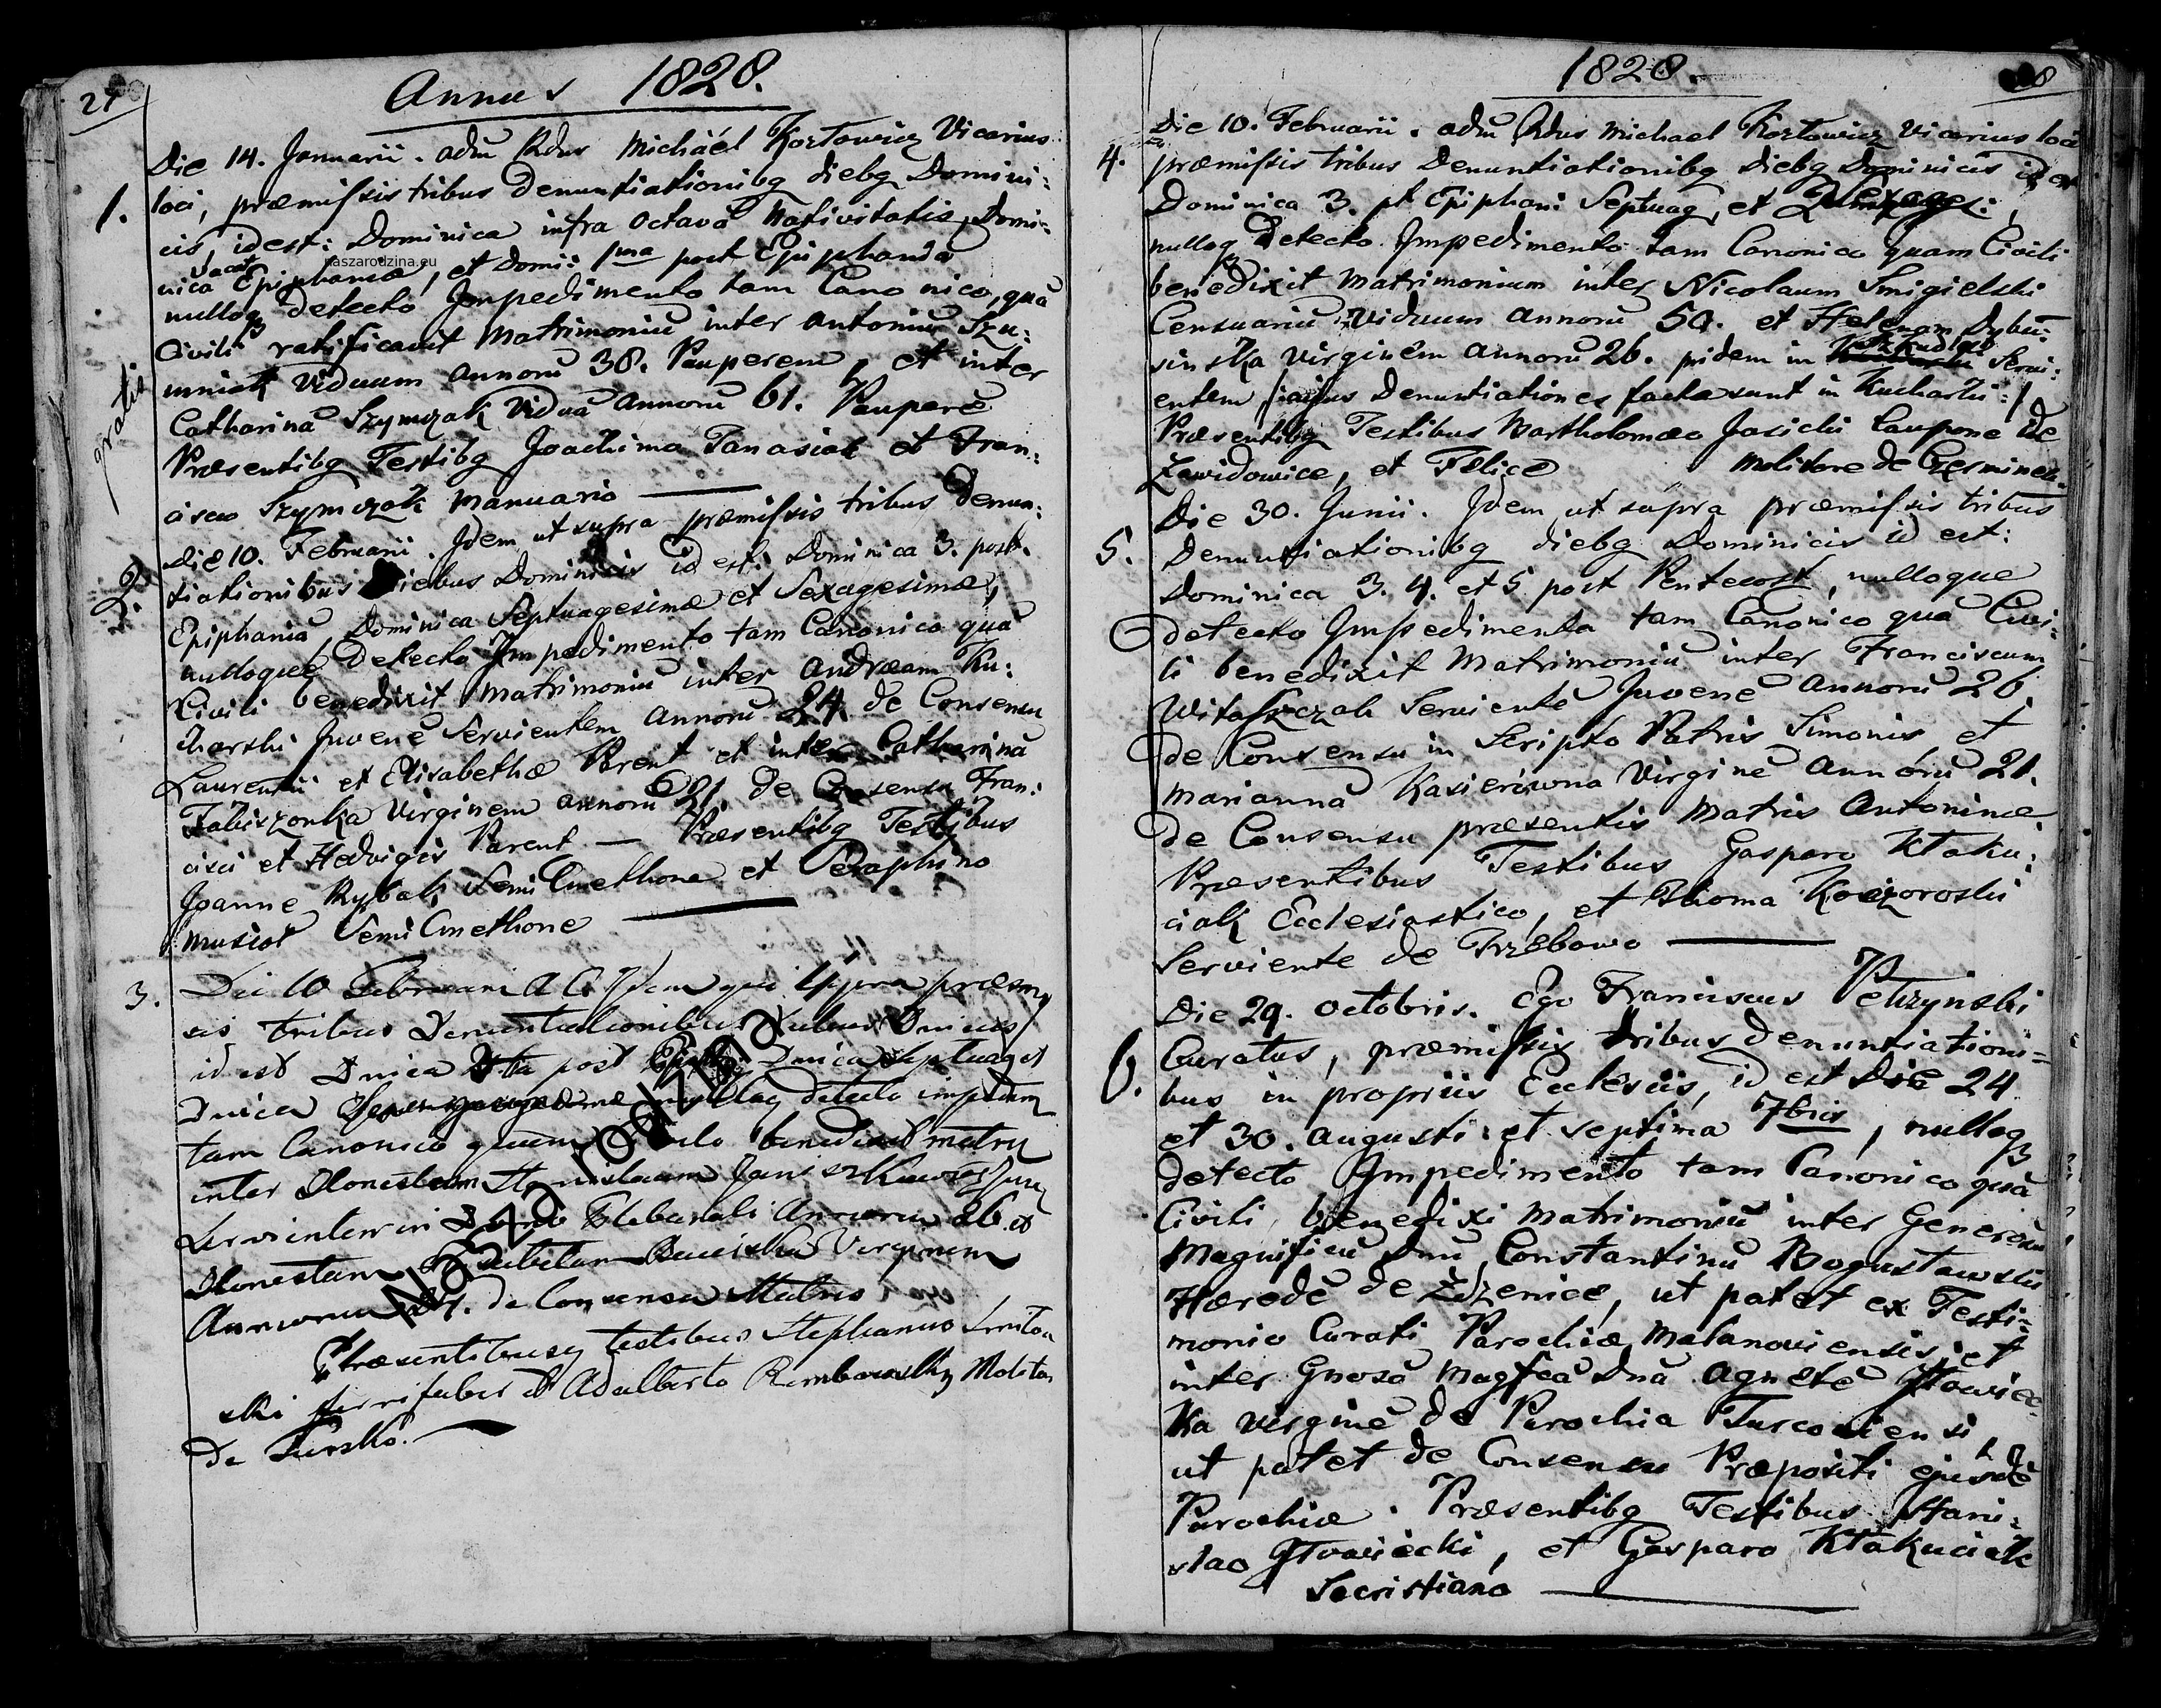 27
Annus 1828.
Die 14. Januarii. adm Rdus Michaël Kozłowicz Vicarius
1. loci, præmissis tribus denuntiationibq diebq Domini:
cis, idest: Dominica infra octavã Nativitatis, Domi:
nica Epiphaniæ, et Domi: 1ma post Epiphaniã
naszarodzina.eu
nulloq detecto Impedimento tam Canonico, quã
Civili ratificavit Matrimoniũ inter Antoniũ Szu:
mniak Viduum annorũ 38. Pauperem, et inter
gratis
Catharinã Szymczak Viduã annorũ 61. Pauperẽ
Præsentibq Testibq Joachimo Banasiak et Fran:
cisco Szymczak Manuario
2. Die 10. Februarii. Idem ut supra præmissis tribus denun:
tiationibus diebus Dominicis id est: Dominica 3. post
Epiphaniã, Dominica Septuagesimæ et Sexagesimæ,
nulloque detecto Impedimento tam Canonico quã
Civili benedixit Matrimoniũ inter Andræam Ku:
charski Juvenẽ Servientem annorũ 24. de Consensu
Laurentii et Elisabethæ Parent et inter Catharinã
Fabiszonka Virginem annorũ 21. de Consensu Fran:
cisci et Hedvigis Parent — Præsentibq Testibus
Joanne Rybak Semi Cmethone et Seraphino
Musioł Semi Cmethone
3. Die 10 Februarii A C Idem qui supra præmis
sis tribus Denuntiationibus
id est Dnica 3tia post Dnica Septuages
Dnica nulloq detecto impedim
tam Canonico quam benedixit matrim
inter Honestum Stanislaum
Servientem in Domo Plebanali Annorum 26. et
Honestam Virginem
Annorum 24. de Consensu Matris
Præsentibusq testibus Stephano
ski ferrifabro et Adalberto Rembowski Molitor
de Tursko.
Nasza rodzina
1828.
28
Die 10. Februarii. adm Rdus Michael Kozłowicz Vicarius loci
4. præmissis tribus Denuntiationibq diebq Dominicis id est
Dominica 3. pt Epiphani Septuag, et Sexages:,
nulloq detecto Impedimento tam Canonico quam Civili
benedixit Matrimonium inter Nicolaum Smigielski
Censuariũ Viduum annorũ 50. et Helenam Dybu:
sinska Virginem annorũ 26. pridem in Servi:
entem cujus Denuntiationes factæ sunt in Kucharki:/
Præsentibq Testibus Bartholomæo Jasicki Caupone de
Zawidowice, et Felice Molitore de Czerminek.
Die 30. Junii. Idem ut supra præmissis tribus
5. Denuntiationibq diebq Dominicis id est:
Dominica 3. 4. et 5 post Pentecost, nulloque
detecto Impedimento tam Canonico quã Civi:
li benedixit Matrimoniũ inter Franciscum
Witaszczak Servientẽ Juvenẽ annorũ 26.
de Consensu in Scripto Patris Simonis, et
Mariannã Kasierówna Virginẽ annorũ 21.
de Consensu præsentis Matris Antoninæ
Præsentibus Testibus Gasparo Kłaku:
ciak Ecclesiastico, et Thoma Koczoroski
Serviente de Trzebowo
Die 29. Octobris. Ego Franciscus Pełzynski
6. Curatus, præmissis tribus denuntiationi=
bus in propriis Ecclesiis, id est Die 24
et 30. Augusti et septima 7bris, nulloq
detecto Impedimento tam Canonico quã
Civili, benedixi Matrimoniũ inter Generosũ
Magnificũ Dnũ Constantinũ Bogusławski
Hæredẽ de Żdzenice, ut patet ex Testi=
monio Curati Parochiæ Malanoviensis, et
inter Gnosã Magfcã Dnã Agnetẽ Głowiec=
ka Virginẽ de Parochia Turcoviensi
ut patet de Consensu Præpositi ejusdẽ
Parochiæ. Præsentibq Testibus Stani:
slao Głowiecki, et Gasparo Kłakuciak
Sacristiano